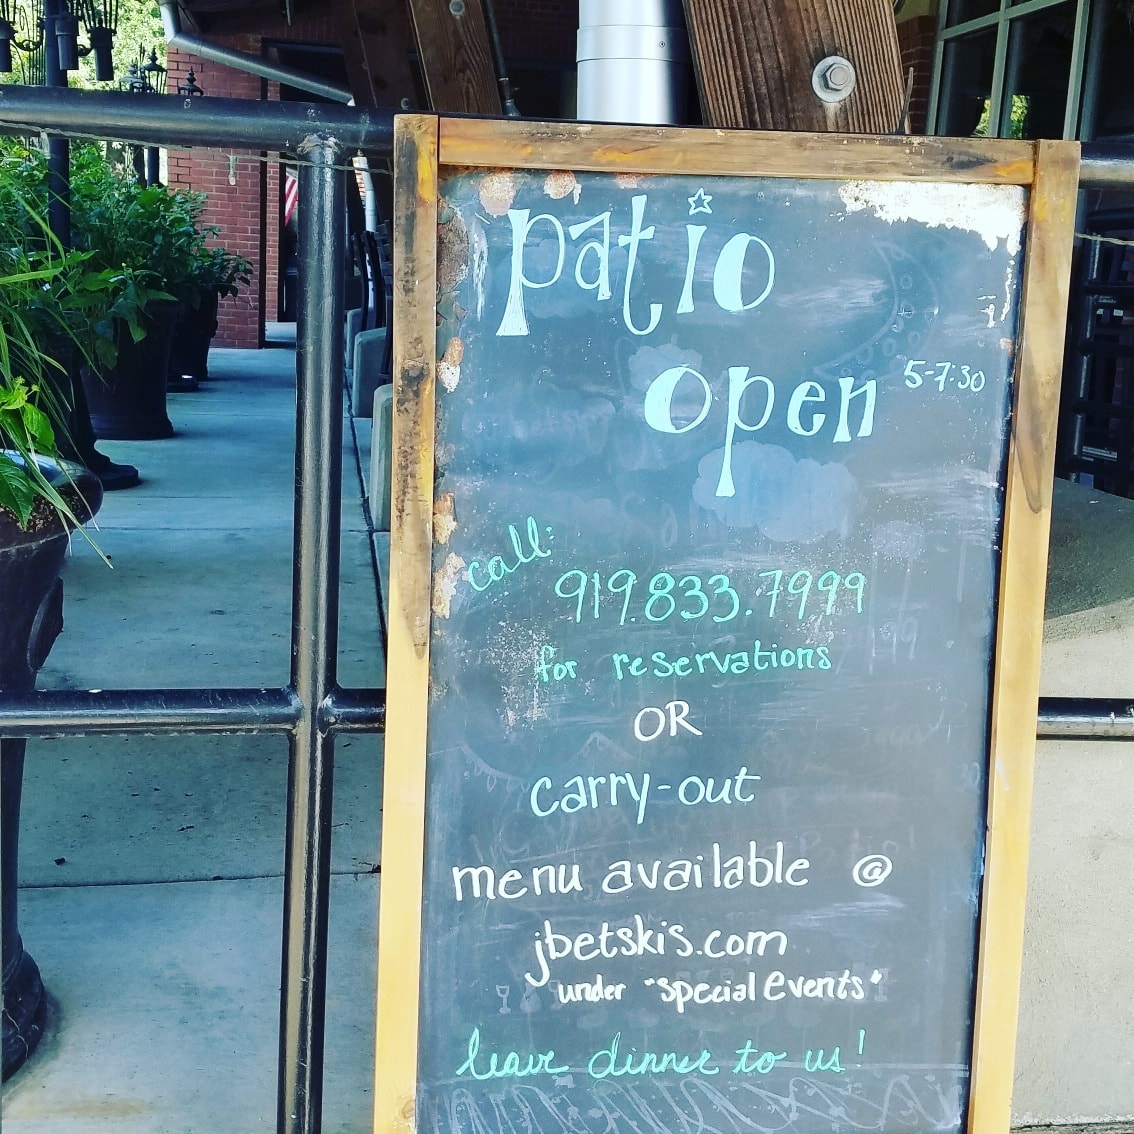 patio
open 5-7:30
call:
919.833.7999
for reservations
OR
carry-out
menu available @
jbetskis.com
under "special events"
leave dinner to us!